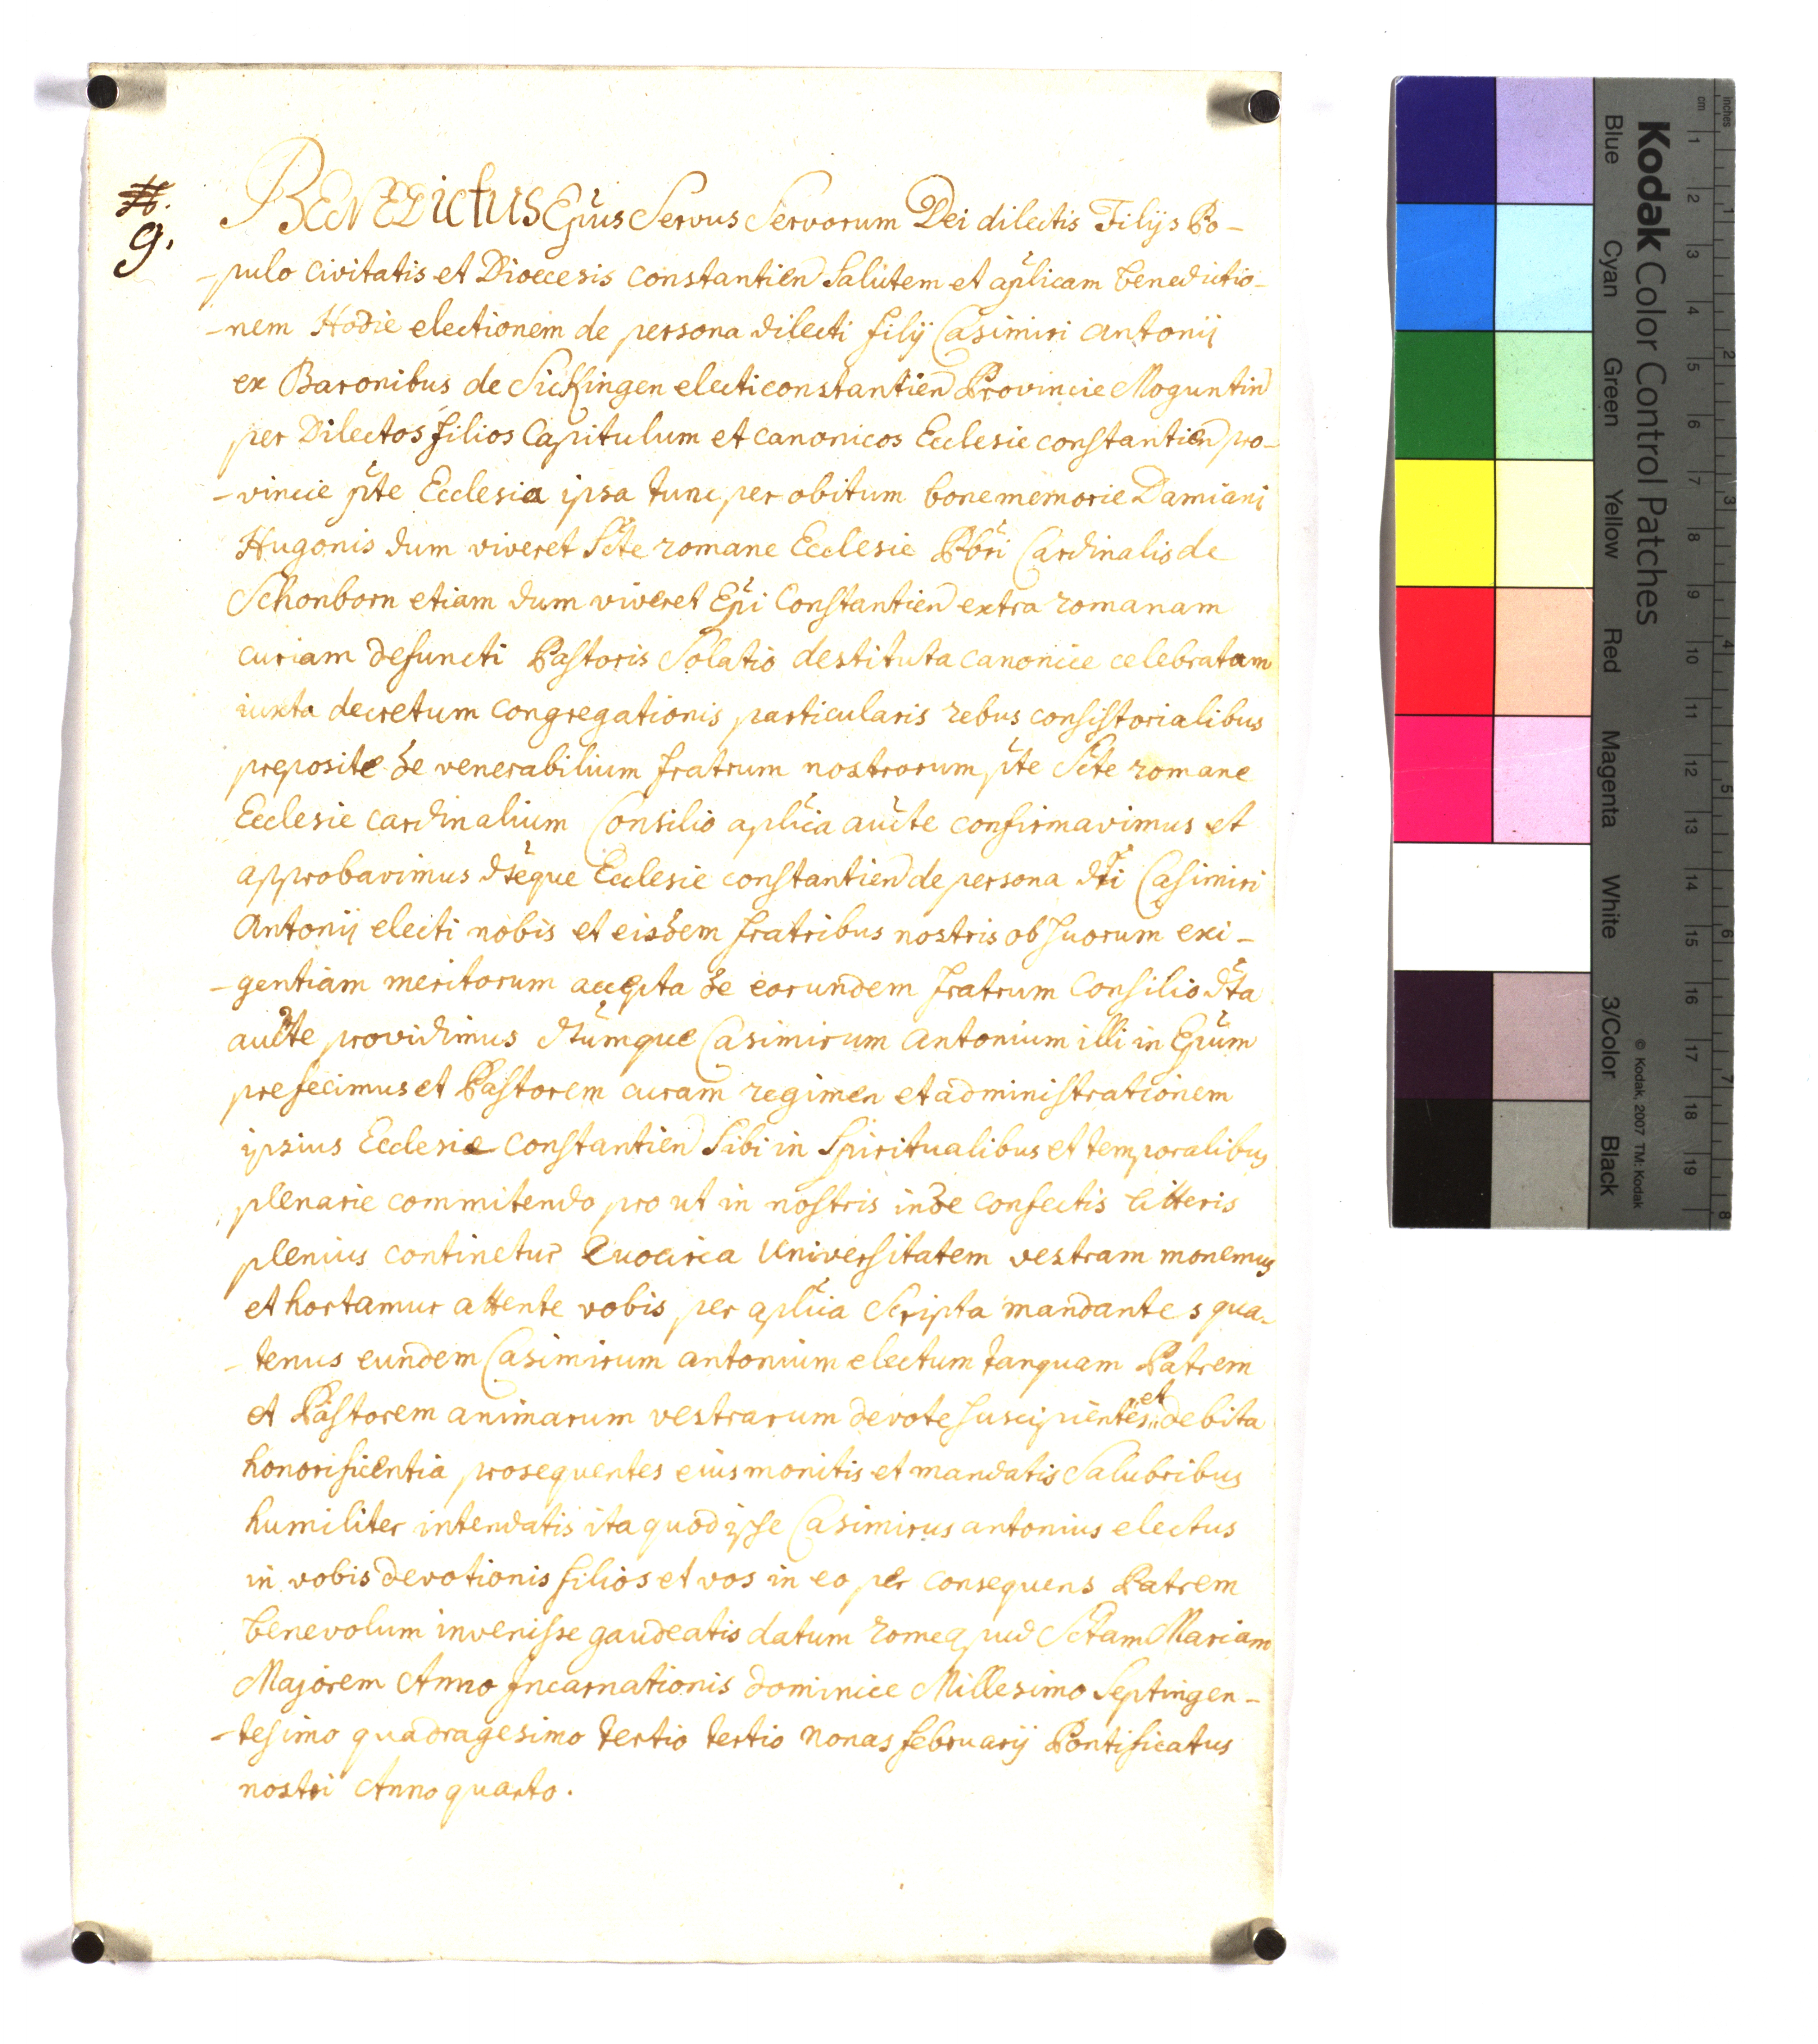 #.
9.
BENEDictus Ep̃us Servus Servorum Dei dilectis Filijs Po-
-pulo Civitatis et Dioecesis Constantien Salutem et ap̃licam benedictio-
-nem Hodie electionem de persona dilecti filij Casimiri Antonij
ex Baronibus de Sickingen electi constantien Provincie Moguntin
per Dilectos filios Capitulum et canonicos Ecclesie constantien pro-
-vincie p̃te Ecclesia ipsa tunc per obitum bone memorie Damiani
Hugonis dum viveret S̃te romane Ecclesie Pb̃ri Cardinalis de
Schonborn etiam dum viveret Ep̃i Constantien extra romanam
curiam defuncti Pastoris Solatio destituta canonice celebratam
iuxta decretum Congregationis particularis rebus consistorialibus
preposite de venerabilium fratrum nostrorum p̃te S̃te romane
Ecclesie cardinalium Consilio ap̃lica aucte confirmavimus et
approbavimus dt̃eque Ecclesie constantien de persona dt̃i Casimiri
Antonij electi nobis et eisdem fratribus nostris ob suorum exi-
-gentiam meritorum accepta de eorundem fratrum Consilio dt̃a
aucte providimus dt̃umque Casimirum Antonium illi in Ep̃um
prefecimus et Pastorem curam regimen et administrationem
ipsius Ecclesie Constantien Sibi in Spiritualibus et temporalibus
plenarie commitendo pro ut in nostris inde confectis litteris
plenius continetur Quocirca Universitatem vestram monemus
et hortamur attente vobis per ap̃lica Scripta mandantes qua-
-tenus eundem Casimirum antonium electum tanquam Patrem
et Pastorem animarum vestrarum devote suscipientes et debita
honorificentia prosequentes eius monitis et mandatis Salubribus
humiliter intendatis ita quod ipse Casimirus antonius electus
in vobis devotionis filios et vos in eo per consequens Patrem
benevolum invenisse gaudeatis datum rome apud Sctam Mariam
Majorem Anno Incarnationis dominice Millesimo Septingen-
-tesimo quadragesimo tertio tertio Nonas februarij Pontificatus
nostri Anno quarto.
Kodak Color Control Patches
© Kodak, 2007 TM: Kodak
Blue Cyan Green Yellow Red Magenta White 3/Color Black
cm 1 2 3 4 5 6 7 8 9 10 11 12 13 14 15 16 17 18 19
inches 1 2 3 4 5 6 7 8